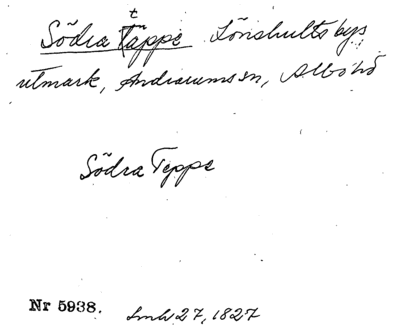 t
Södra Täppe Lönshults bys
utmark, Andrarums sn, Albo hd
Södra Teppe
Nr 5938. Lmh 27, 1827